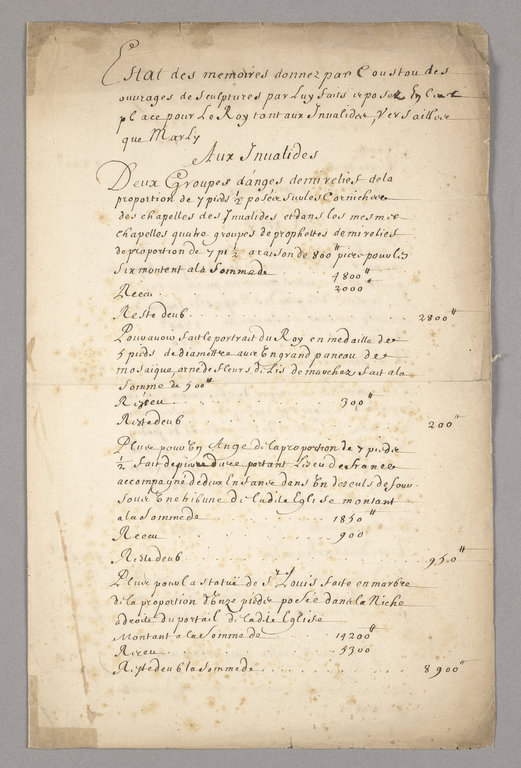 Estat des memoires donnez par Coustou des
ouvrages de Sculptures par Luy faits et posez En leur
place pour Le Roy tant aux Invalides, Versailles
que Marly
Aux Invalides
Deux Groupes d'anges demi reliefs de la
proportion de 7 pieds ½ posées sur les Corniches
des chapelles des Invalides et dans les mesmes
chapelles quatre groupes de prophettes demi reliefs
de proportion de 7 pi ½ a raison de 800# piece pour les
Six montent a la Somme de 4800#
Receu 2000#
Reste deub 2800#
Pour avoir fait le portrait du Roy en medaille de
5 pieds de diamettre avec En grand paneau de
mosaique, orné de fleurs de Lis de fait a la
Somme de 500#
Receu 300#
Reste deub 200#
Plus pour En Ange de la proportion de 7 pieds
½ fait de pierre dure portant L'Ecu de france
accompagné de d'un Enfance dans En de
Sous Ene tribune de ladite Eglise montant
a la Somme de 1850#
Receu 900
Reste deub 950#
Plus pour la statue de St Louis faite en marbre
de la proportion d'Onze pieds posée dans la Niche
a droite du portail de ladite Eglise
Montant a la Somme de 14200#
Receu 5300
Reste deub la Somme de 8900#